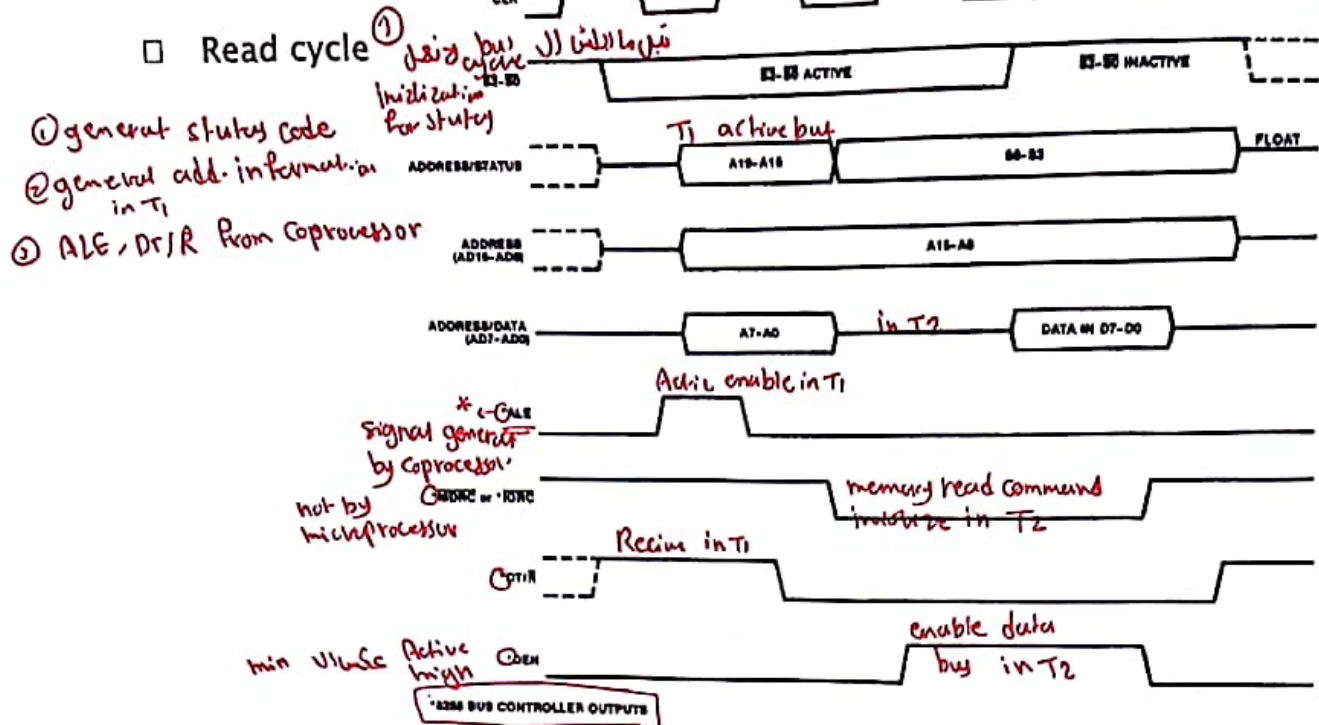 CLK
□ Read cycle
①
قبل ما ابلش ال bus cycle
Inizlization
for status
S̅3̅-S̅0̅
S̅2̅-S̅0̅ ACTIVE
S̅2̅-S̅0̅ INACTIVE
① general status code
② general add. information
in T1
③ ALE, DT/R from coprocessor
T1 active bus
ADDRESS/STATUS
A19-A16
S6-S3
FLOAT
ADDRESS
(AD15-AD8)
A15-A8
ADDRESS/DATA
(AD7-AD0)
A7-A0
in T2
DATA IN D7-D0
enable in T1
* ALE
signal generat
by coprocessor
not by
microprocessor
*MRDC or *IORC
memory read command
in T2
in T1
*DT/R
enable data
bus in T2
min
Active
high
*DEN
*8288 BUS CONTROLLER OUTPUTS